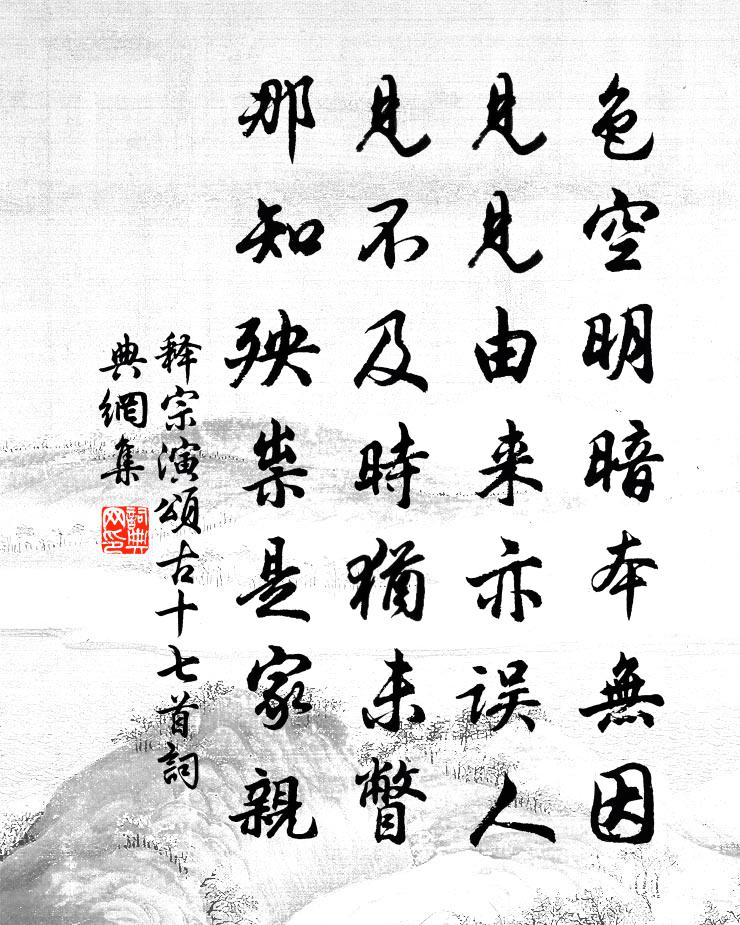 色空明暗本無因
見見由来亦误人
見不及時猶未瞥
那知殃祟是家親
释宗演頌古十七首詞
典網集
詞典
网印